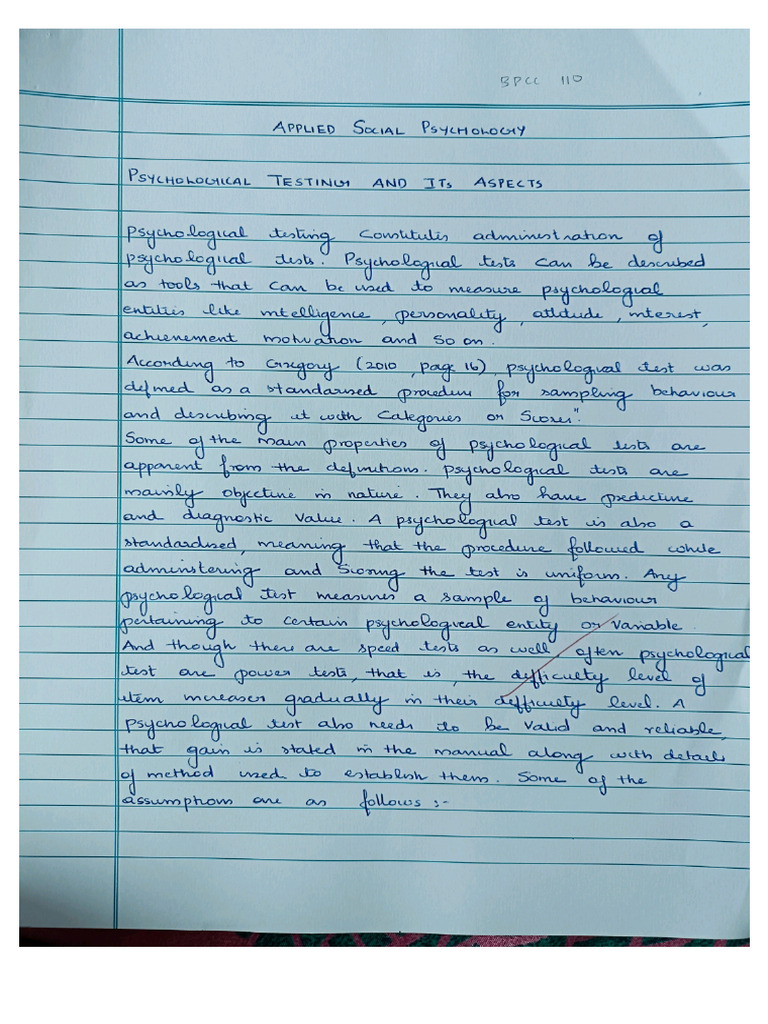 BPCC 110
APPLIED SOCIAL PSYCHOLOGY
PSYCHOLOGICAL TESTING AND ITS ASPECTS
Psychological testing constitutes administration of
psychological tests. Psychological tests can be described
as tools that can be used to measure psychological
entities like intelligence, personality, attitude, interest,
achievement motivation and so on.
According to Gregory (2010, page 16), psychological test was
defined as a standarised procedure for sampling behaviour
and describing it with categories or scores".
Some of the main properties of psychological tests are
apparent from the definitions. psychological tests are
mainly objective in nature. They also have predictive
and diagnostic value. A psychological test is also a
standardised, meaning that the procedure followed while
administering and scoring the test is uniform. Any
psychological test measures a sample of behaviour
pertaining to certain psychological entity or variable.
And though there are speed tests as well, often psychological
test are power tests, that is, the difficulty level of
item increases gradually in their difficulty level. A
psychological test also needs to be valid and reliable,
that gain is stated in the manual along with details
of method used to establish them. Some of the
assumptions are as follows :-